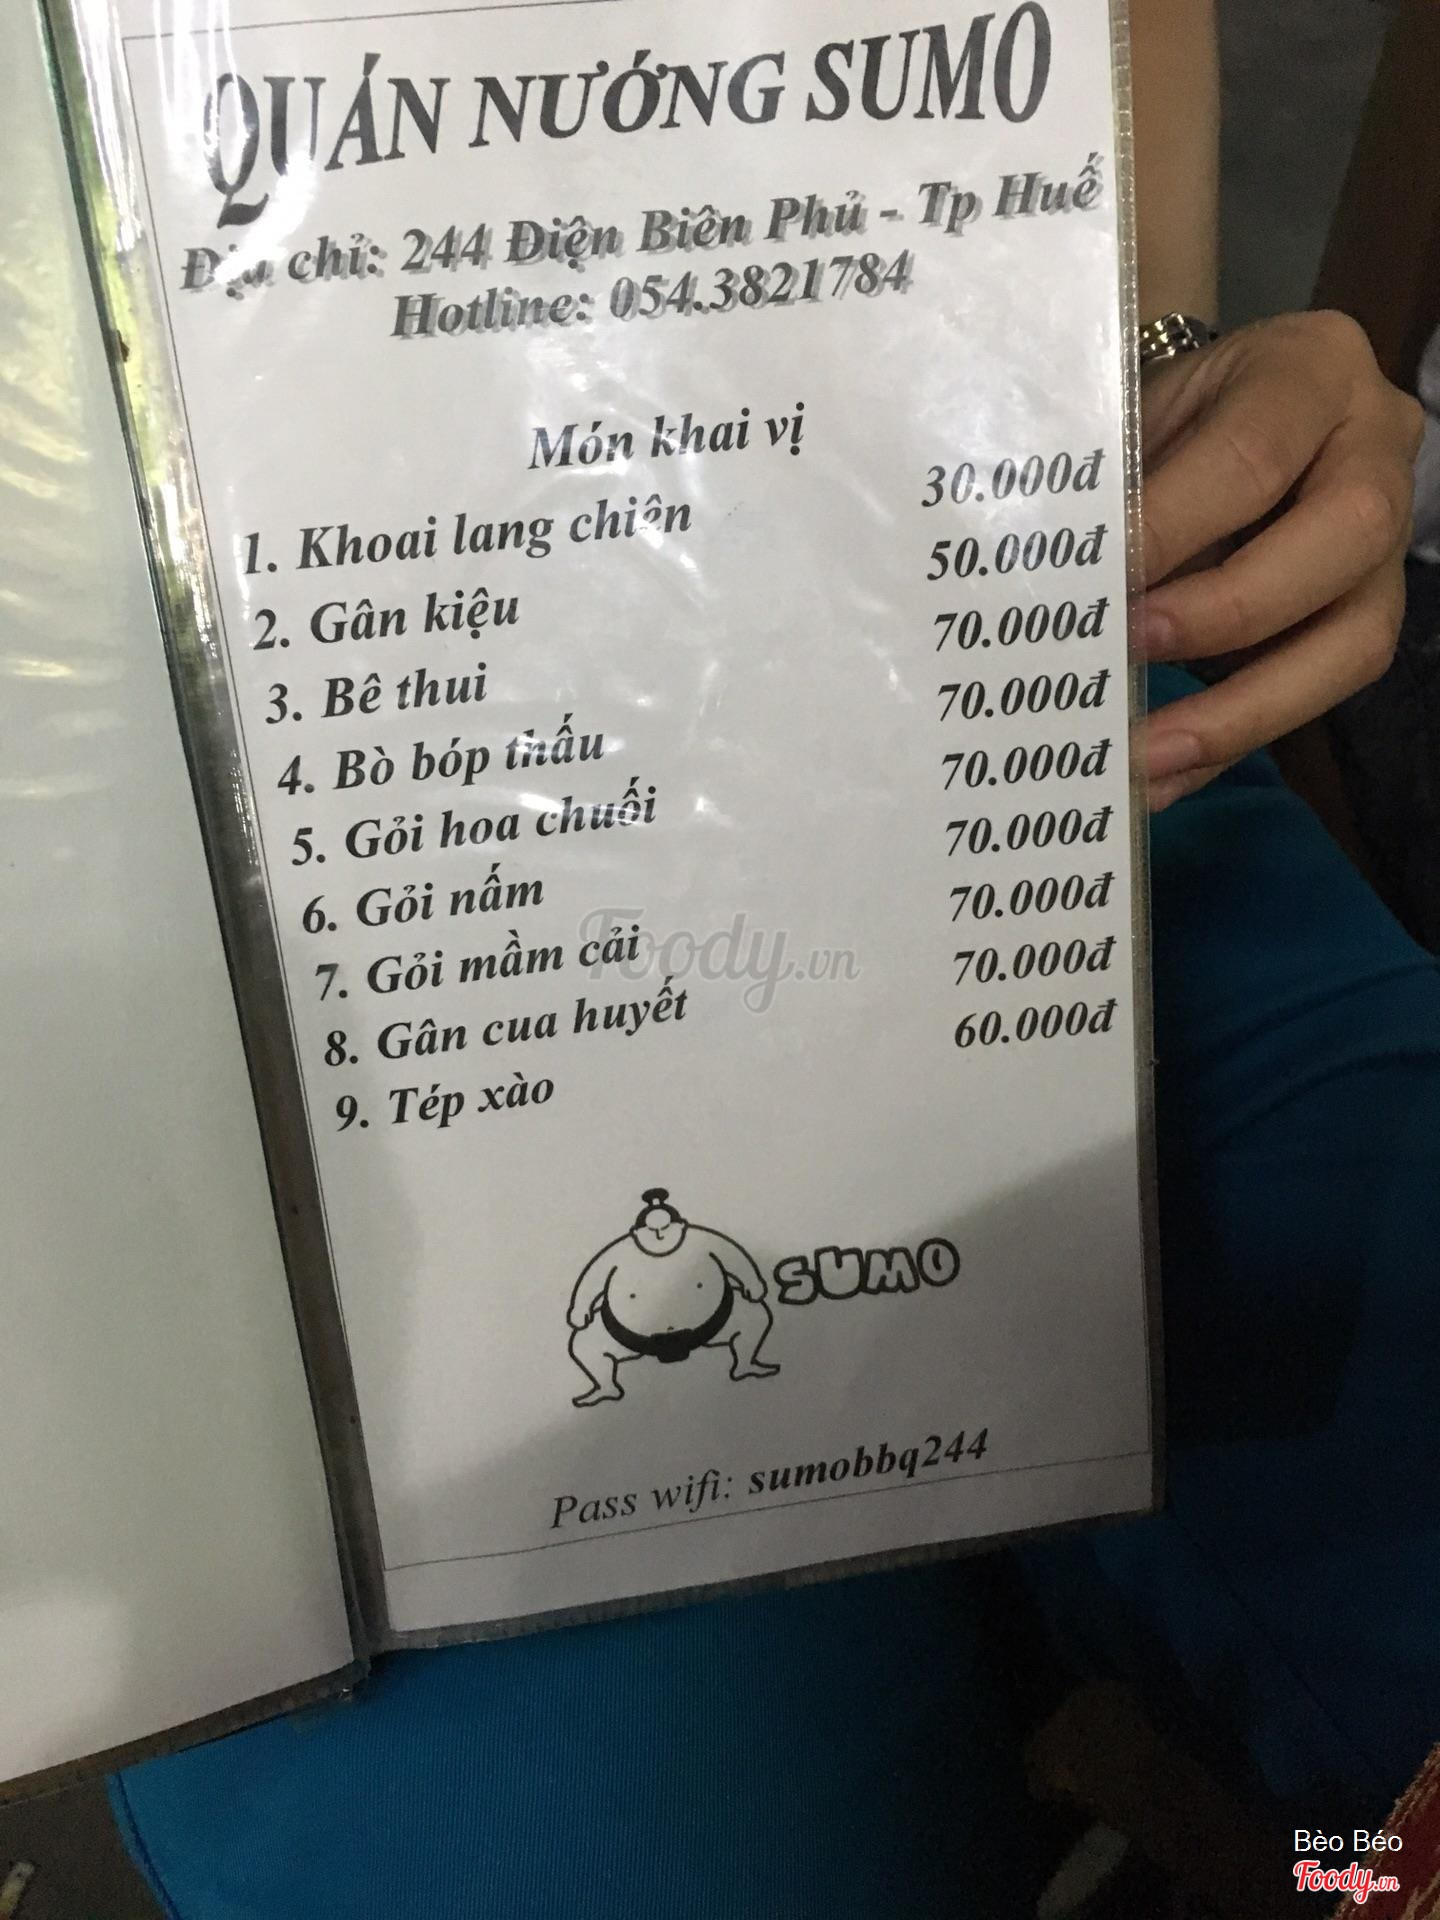 QUÁN NƯỚNG SUMO
Địa chỉ: 244 Điện Biên Phủ - Tp Huế
Hotline: 054.3821784
Món khai vị
1. Khoai lang chiên 30.000đ
2. Gân kiệu 50.000đ
3. Bê thui 70.000đ
4. Bò bóp thấu 70.000đ
5. Gỏi hoa chuối 70.000đ
6. Gỏi nấm 70.000đ
7. Gỏi mầm cải 70.000đ
8. Gân cua huyết 70.000đ
9. Tép xào 60.000đ
Foody.vn
SUMO
Pass wifi: sumobbq244
Bèo Béo
Foody.vn